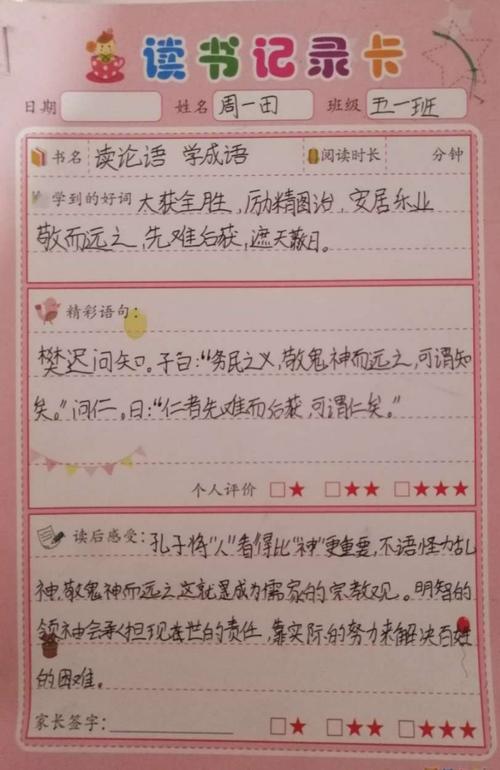 读书记录卡
日期 姓名 周一田 班级 五一班
书名 读论语 学成语 阅读时长 分钟
学到的好词 大获全胜，励精图治，安居乐业
敬而远之，先难后获，遮天蔽日。
精彩语句：
樊迟问知。子曰：“务民之义，敬鬼神而远之，可谓知
矣。”问仁。曰：“仁者先难而后获，可谓仁矣。”
个人评价 □★ □★★ □★★★
读后感受：孔子将“人”看得比“神”更重要，不语怪力乱
神，敬鬼神而远之这就是成为儒家的宗教观。明智的
领神会承担现在世的责任，靠实际的努力来解决百姓
的困难。
家长签字： □★ □★★ □★★★